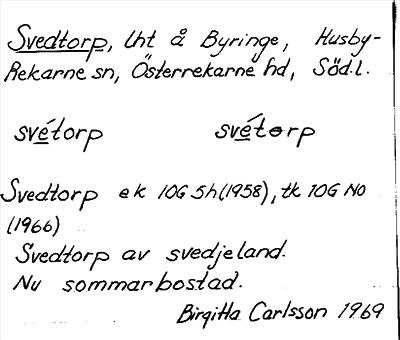 Svedtorp, lht å Byringe, Husby-
Rekarne sn, Österrekarne hd, Söd.l.
svétorp svétorp
Svedtorp ek 10G 5h (1958), tk 10G NO
(1966)
Svedtorp av svedjeland.
Nu sommarbostad.
Birgitta Carlsson 1969